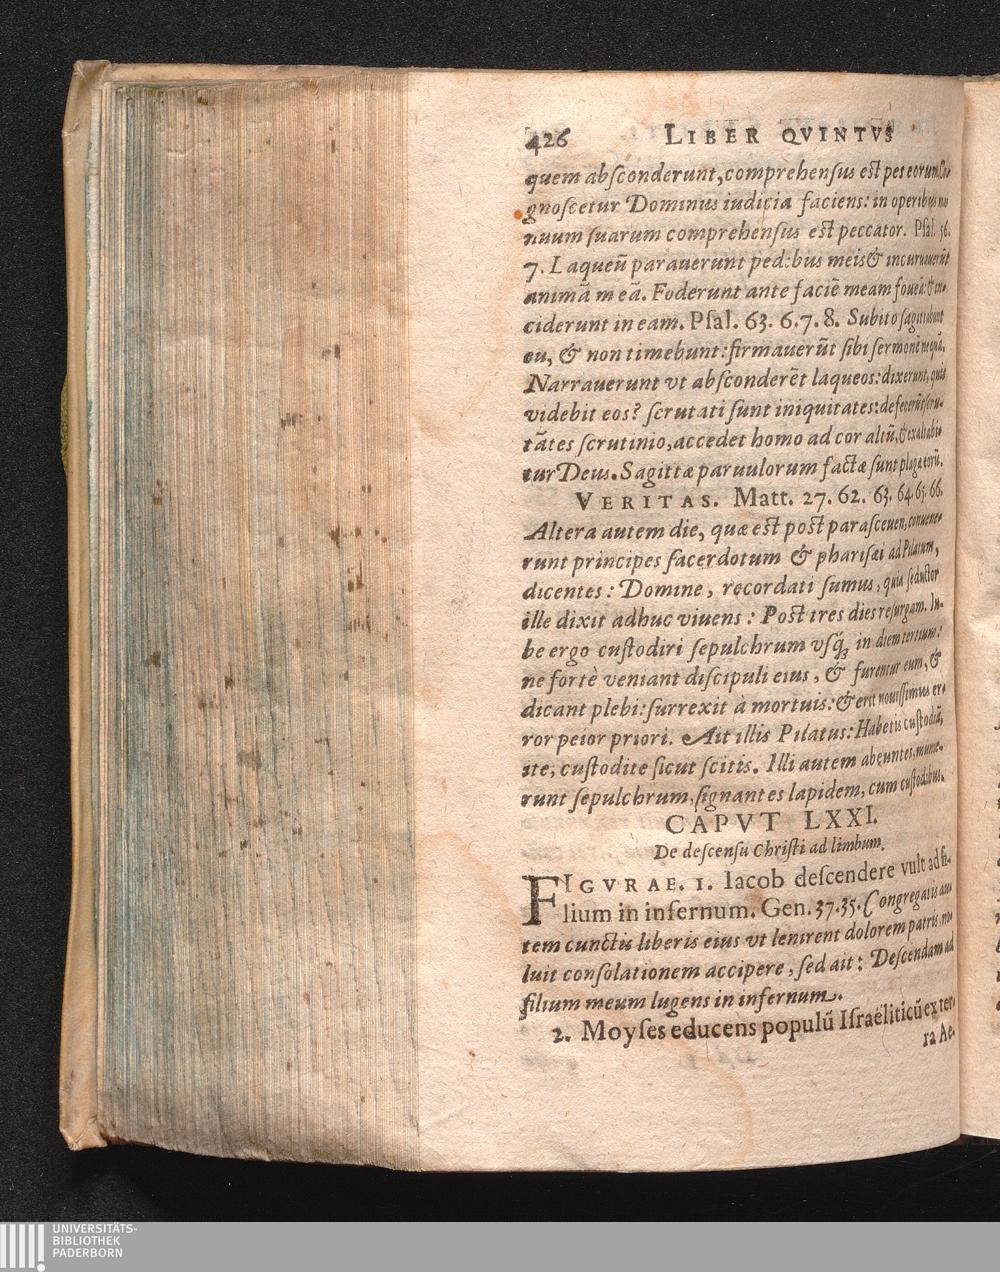 426 LIBER QVINTVS
quem absconderunt, comprehensus est pes eorum. Co-
gnoscetur Dominus iudicia faciens: in operibus ma
nuum suarum comprehensus est peccator. Psal. 56.
7. Laqueū parauerunt ped:bus meis & incuruauerūt
animā meā. Foderunt ante faciē meam foueā: & in-
ciderunt in eam. Psal. 63. 6. 7. 8. Subito sagittabunt
eu, & non timebunt: firmauerūt sibi sermonē nequā.
Narrauerunt vt absconderēt laqueos: dixerunt, quis
videbit eos? scrutati sunt iniquitates: defecerūt scru-
tātes scrutinio, accedet homo ad cor altū, & exaltabi-
tur Deus. Sagittæ paruulorum factæ sunt plagæ eorū.
VERITAS. Matt. 27. 62. 63. 64. 65. 66.
Altera autem die, quæ est post parasceuen, conuene-
runt principes sacerdotum & pharisæi ad Pilatum,
dicentes: Domine, recordati sumus, quia seductor
ille dixit adhuc viuens: Post tres dies resurgam. Iu-
be ergo custodiri sepulchrum vsq́; in diem tertium:
ne fortè veniant discipuli eius, & furentur eum, &
dicant plebi: surrexit à mortuis: & erit nouissimus er-
ror peior priori. Ait illis Pilatus: Habetis custodiā,
ite, custodite sicut scitis. Illi autem abeuntes, mune-
runt sepulchrum, signantes lapidem, cum custodibus.
CAPVT LXXI.
De descensu Christi ad limbum.
FIGVRAE. 1. Iacob descendere vult ad fi-
lium in infernum. Gen. 37. 35. Congregatis au-
tem cunctis liberis eius vt lenirent dolorem patris, no-
luit consolationem accipere, sed ait: Descendam ad
filium meum lugens in infernum.
2. Moyses educens populū Israëliticū ex ter-
ra Ae-
UNIVERSITÄTS-
BIBLIOTHEK
PADERBORN